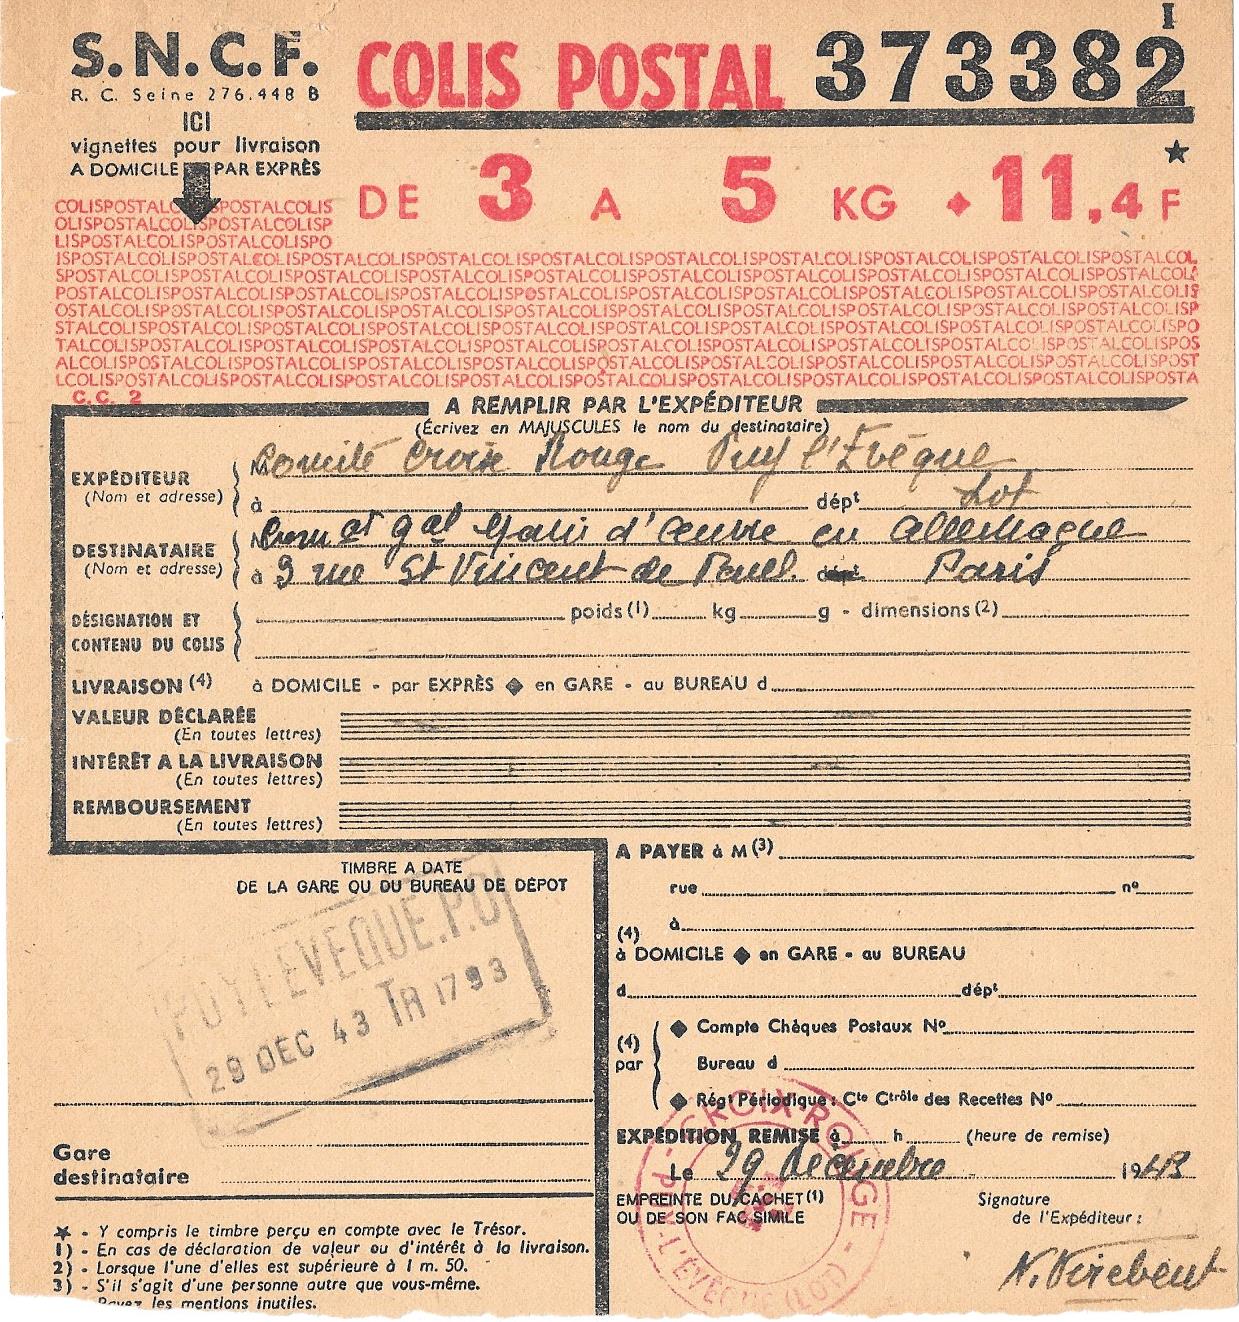 S.N.C.F.
R. C. Seine 276.448 B
ICI
vignettes pour livraison
A DOMICILE PAR EXPRÈS
COLIS POSTAL 373382
I
★
DE 3 A 5 KG ◆ 11,4 F
COLISPOSTALC POSTALCOLIS
OLISPOSTALCOLISPOSTALCOLISP
LISPOSTALCOLISPOSTALCOLISPO
ISPOSTALCOLISPOSTALCOLISPOSTALCOLISPOSTALCOLISPOSTALCOLISPOSTALCOLISPOSTALCOLISPOSTALCOLISPOSTALCOL
SPOSTALCOLISPOSTALCOLISPOSTALCOLISPOSTALCOLISPOSTALCOLISPOSTALCOLISPOSTALCOLISPOSTALCOLISPOSTALCOLI
POSTALCOLISPOSTALCOLISPOSTALCOLISPOSTALCOLISPOSTALCOLISPOSTALCOLISPOSTALCOLISPOSTALCOLISPOSTALCOLIS
OSTALCOLISPOSTALCOLISPOSTALCOLISPOSTALCOLISPOSTALCOLISPOSTALCOLISPOSTALCOLISPOSTALCOLISPOSTALCOLISP
STALCOLISPOSTALCOLISPOSTALCOLISPOSTALCOLISPOSTALCOLISPOSTALCOLISPOSTALCOLISPOSTALCOLISPOSTALCOLISPO
TALCOLISPOSTALCOLISPOSTALCOLISPOSTALCOLISPOSTALCOLISPOSTALCOLISPOSTALCOLISPOSTALCOLISPOSTALCOLISPOS
ALCOLISPOSTALCOLISPOSTALCOLISPOSTALCOLISPOSTALCOLISPOSTALCOLISPOSTALCOLISPOSTALCOLISPOSTALCOLISPOST
LCOLISPOSTALCOLISPOSTALCOLISPOSTALCOLISPOSTALCOLISPOSTALCOLISPOSTALCOLISPOSTALCOLISPOSTALCOLISPOSTA
C.C. 2
A REMPLIR PAR L'EXPÉDITEUR
(Écrivez en MAJUSCULES le nom du destinataire)
EXPÉDITEUR M Comité Croix Rouge Puy l'Evêque
(Nom et adresse) à dépt Lot
DESTINATAIRE M Com at gal Main d'œuvre en Allemagne
(Nom et adresse) à 3 rue St Vincent de Paul. dépt Paris
DÉSIGNATION ET poids (1) kg g - dimensions (2)
CONTENU DU COLIS
LIVRAISON (4) à DOMICILE - par EXPRÈS ◆ en GARE - au BUREAU d
VALEUR DÉCLARÉE
(En toutes lettres)
INTÉRÊT A LA LIVRAISON
(En toutes lettres)
REMBOURSEMENT
(En toutes lettres)
TIMBRE A DATE
DE LA GARE OU DU BUREAU DE DÉPOT
PUY L'EVEQUE.P.O
29 DEC 43 TR 1793
Gare
destinataire
★ - Y compris le timbre perçu en compte avec le Trésor.
1) - En cas de déclaration de valeur ou d'intérêt à la livraison.
2) - Lorsque l'une d'elles est supérieure à 1 m. 50.
3) - S'il s'agit d'une personne autre que vous-même.
Rayez les mentions inutiles.
A PAYER à M (3)
rue nº
à
(4)
à DOMICILE ◆ en GARE - au BUREAU
d dépt
(4)
par
◆ Compte Chèques Postaux Nº
Bureau d
◆ Régt Périodique : Cte Ctrôle des Recettes Nº
EXPÉDITION REMISE à h (heure de remise)
Le 29 décembre 1943
EMPREINTE DU CACHET (1)
OU DE SON FAC SIMILE
Signature
de l'Expéditeur :
CROIX-ROUGE - PUY-L'ÉVÊQUE (LOT)
N. Virebent